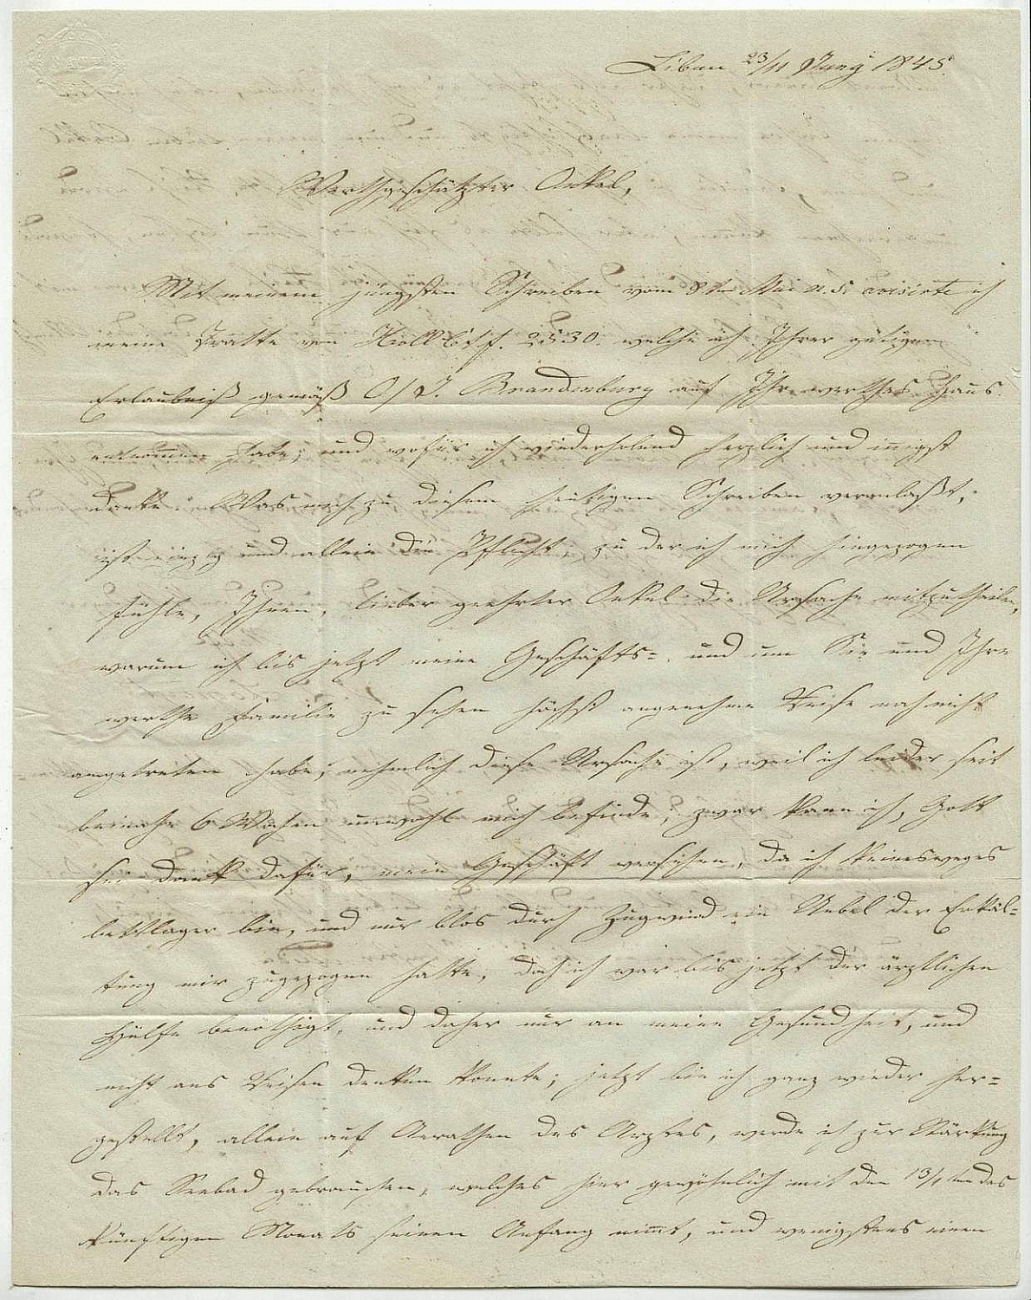 Libau 23/11 Juny 1845.
Werthgeschätzter Onkel,
Mit meinem jüngsten Schreiben vom 8ten Mai a. S. avisirte ich
meine Tratte von Holl. f. 2530. welche ich Ihrer gütigen
Erlaubniß gemäß O/ Brandenburg auf Ihr werthes Haus
entnommen habe, und wofür ich wiederholend herzlich und innigst
danke. Was mich zu diesem heutigen Schreiben veranlaßt,
ist einzig und allein die Pflicht, zu der ich mich hingezogen
fühle, Ihnen, lieber geehrter Onkel die Ursache mitzutheilen,
warum ich bis jetzt meine Geschäfts-, und um Sie und Ihre
werthe Familie zu sehen höchst angenehme Reise noch nicht
angetreten habe; nehmlich diese Ursache ist, weil ich leider seit
beinahe 6 Wochen unwohl mich befinde; zwar kann ich, Gott
sei Dank dafür, mein Geschäft versehen, da ich keinesweges
bettlager bin, und nur blos durch Zugwind ein Uebel der Erkäl=
tung mir zugezogen hatte, doch ich war bis jetzt der ärztlichen
Hülfe benöthigt, und daher nur an meine Gesundheit, und
nicht ans Reisen denken konnte; jetzt bin ich ganz wieder her=
gestellt, allein auf Anrathen des Arztes, werde ich zur Stärkung
das Seebad gebrauchen, welches hier gewöhnlich mit den 13/1ten des
künftigen Monats seinen Anfang nimt, und wenigstens einen